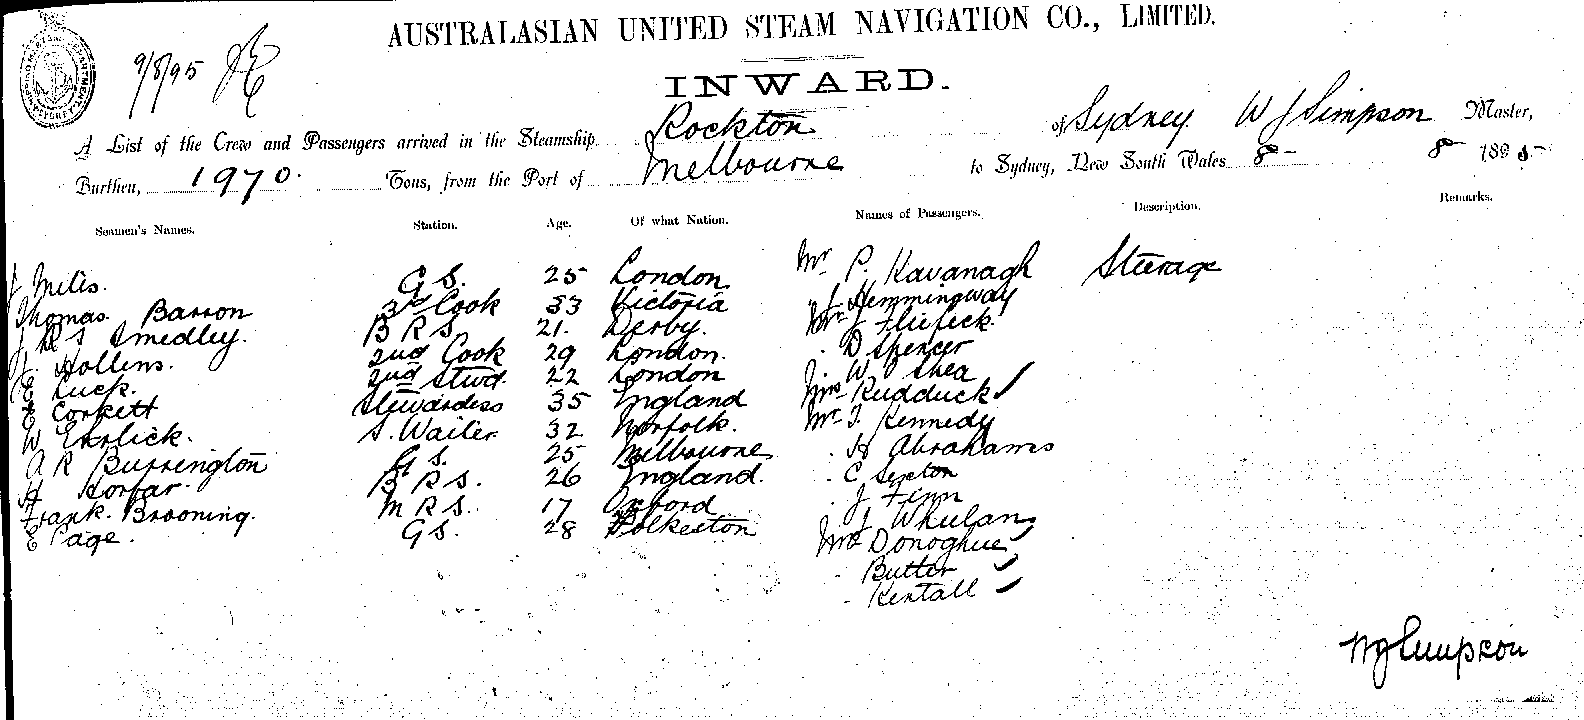 AUSTRALASIAN UNITED STEAM NAVIGATION CO., LIMITED.
9/8/95
INWARD.
A List of the Crew and Passengers arrived in the Steamship Rockton of Sydney W J Simpson Master,
Burthen, 1970. Tons, from the Port of Melbourne to Sydney, New South Wales 8 - 8 1895-
Seamen's Names. Station. Age. Of what Nation. Names of Passengers. Description. Remarks.
J Miles. G S. 25 London Mr P. Kavanagh Steerage
Thomas Barron 3rd Cook 33 Victoria J Hemmingway
Smedley. B R S. 21. Derby. Mr J
J. Hollins. 2nd Cook 29 London. D Spencer
E Luck. 2nd Stwd. 22 London W Shea
E Corkett Stewardess 35 England Mrs Rudduck
W Ehrlick. S. Waiter 32 Norfolk. Mr T. Kennedy
A R Burrington G S. 25 Melbourne H Abrahams
H Horfar. B R S. 26 England. C Sexton
Frank. Brooning. M R S. 17 Oxford J Finn
E Page. G S. 28 Folkeston J Whelan
Mrs Donoghue
Butter
Kentall
W J Simpson